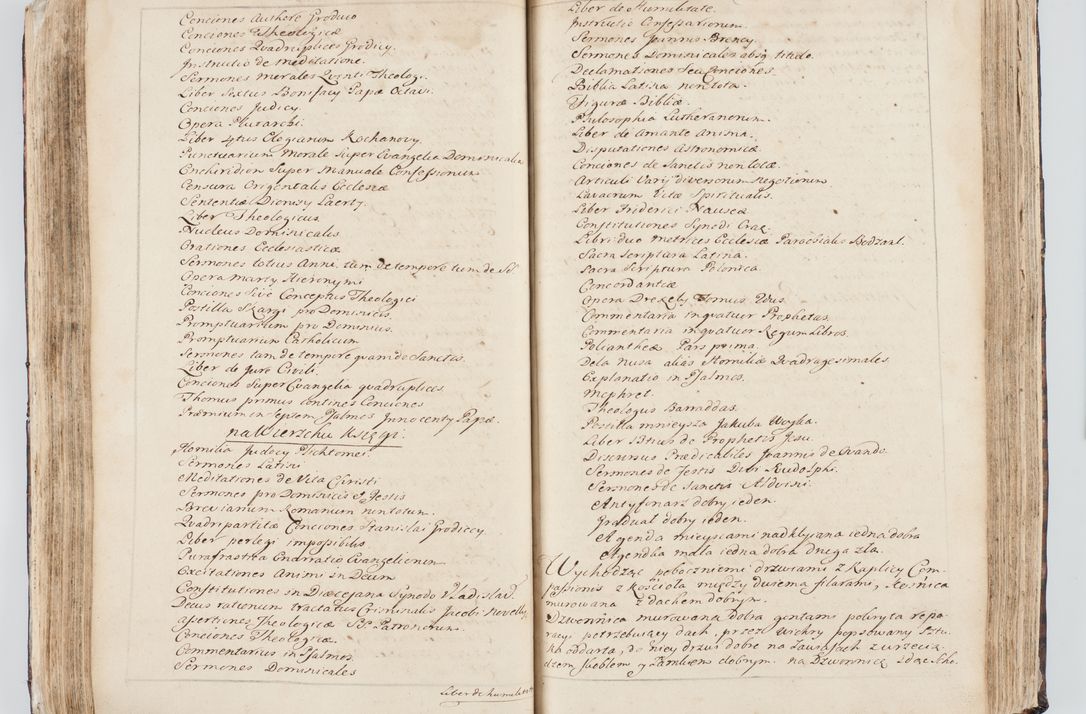 Conciones Authore Grodico
Conciones Theologicæ
Conciones Quadruplices Grodicy.
Instructio de meditatione.
Sermones Morales Theologi.
Liber Sextus Bonifacy Papæ Octavi.
Conciones Judicy.
Opera Plutarchi.
Liber 4tus Elegiarum Kochanovy
Punctuarium Morale Super Evangelia Dominicalia
Enchiridion Super Manuale Confessorum
Censura Orientalis Ecclesiæ
Sententiæ Dionisy Laerty.
Liber Theologicus
Nucleus Dominicalis.
Orationes Ecclesiasticæ
Sermones totius Anni, tum de tempore tum de SS.
Opera Marty. Hieronymi
Conciones Sive Conceptus Theologici
Postilla Skargi pro Dominicis.
Promptuarium pro Dominicis.
Promptuarium Catholicum
Sermones tam de tempore quam de Sanctis.
Liber de Jure Civili.
Conciones Super Evangelia quadruplices.
Thomus primus continens Conciones
Præmium in Septem Psalmos Innocenty Papæ.
na Wierzchu Księgi.
Homilia Judocy Clichtonei.
Sermones Latini
Meditationes de Vita Christi
Sermones pro Dominicis et Festis
Breviarium Romanum non totum.
Quadripartitæ Conciones Stanislai Grodiccy.
Liber perlegi impossibilis.
Parafrastica Enarratio Evangeliorum.
Excitationes Animi in Deum
Constitutiones in Diœcesana Synodo Vladislad.
Decus rationum tractatus Criminalis Jacobi Novelly
Assertiones Theologicæ SS. Patronorum.
Conciones Theologicæ.
Commentarius in Psalmos.
Sermones Dominicales
Liber de humilitate
Liber de Humilitate.
Instructio Confessariorum.
Sermones Joannis Brency.
Sermones Dominicales absq titulo.
Declamationes Seu Conciones.
Biblia Latina non tota.
Figuræ Bibliæ.
Philosophia Lutheranorum.
Liber de Amante Anima.
Disputationes Astronomicæ
Conciones de Sanctis non totæ.
Articuli Varÿ diversorum negotiorum
Lavacrum Vitæ Spiritualis.
Liber Friderici Nauseæ
Constitutiones Synodi Crac.
Libri duo Metrices Ecclesiæ Parochialis Bodzant.
Sacra Scriptura Latina.
Sacra Scriptura Polonica.
Concordantiæ
Opera Drexely Tomus Idus.
Commentaria in quatuor Prophetas.
Commentaria in quatuor Regum Libros.
Poliantheæ Pars prima.
Dela Nusa alias Homiliæ Quadragesimales
Explanatio in Psalmos.
Mephret.
Theologus Barraddas.
Postilla mnieysza Jakuba Woyka.
Liber de Prophetis Jesu.
Discursus Prædicabiles Joannis de
Sermones de Festis Divi Rudolphi.
Sermones de Sanctis Aldvini.
Antyfinarz dobry ieden.
Graduał dobry ieden.
Agenda mieyscami nadklijana iedna dobra
Agendka mała iedna dobra druga zła.
Wychodząc pobocznemi drzwiami z Kaplicy Com-
passionis z Kościoła między dwiema filarami, Kośnica
murowana z dachem dobrym.
Dzwonnica murowana Dobra gontami pokryta repa-
racyi potrzebuiący dach, przez Wichry popsowany Sztu-
ka oddarta, do niey drzwi dobre na Zawiasach z wrzecią-
dzem Skoblem y Zamkiem dobrym. na Dzwonnicę